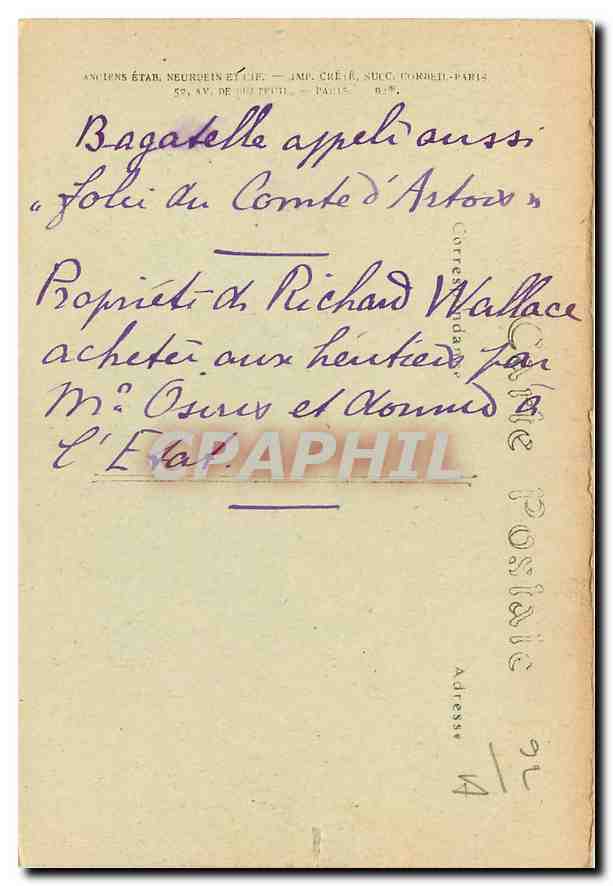 ANCIENS ÉTAB. NEURDEIN ET CIE. — IMP. CRÉTÉ, SUCC. CORBEIL-PARIS
52, AV. DE BRETEUIL. — PARIS.
Bagatelle appelé aussi
"folie du Comte d'Artois"
Propriété de Richard Wallace
achetée aux héritiers par
Mr Osiris et donnée à
l'Etat.
CPAPHIL
Correspondance
Carte Postale
Adresse
92